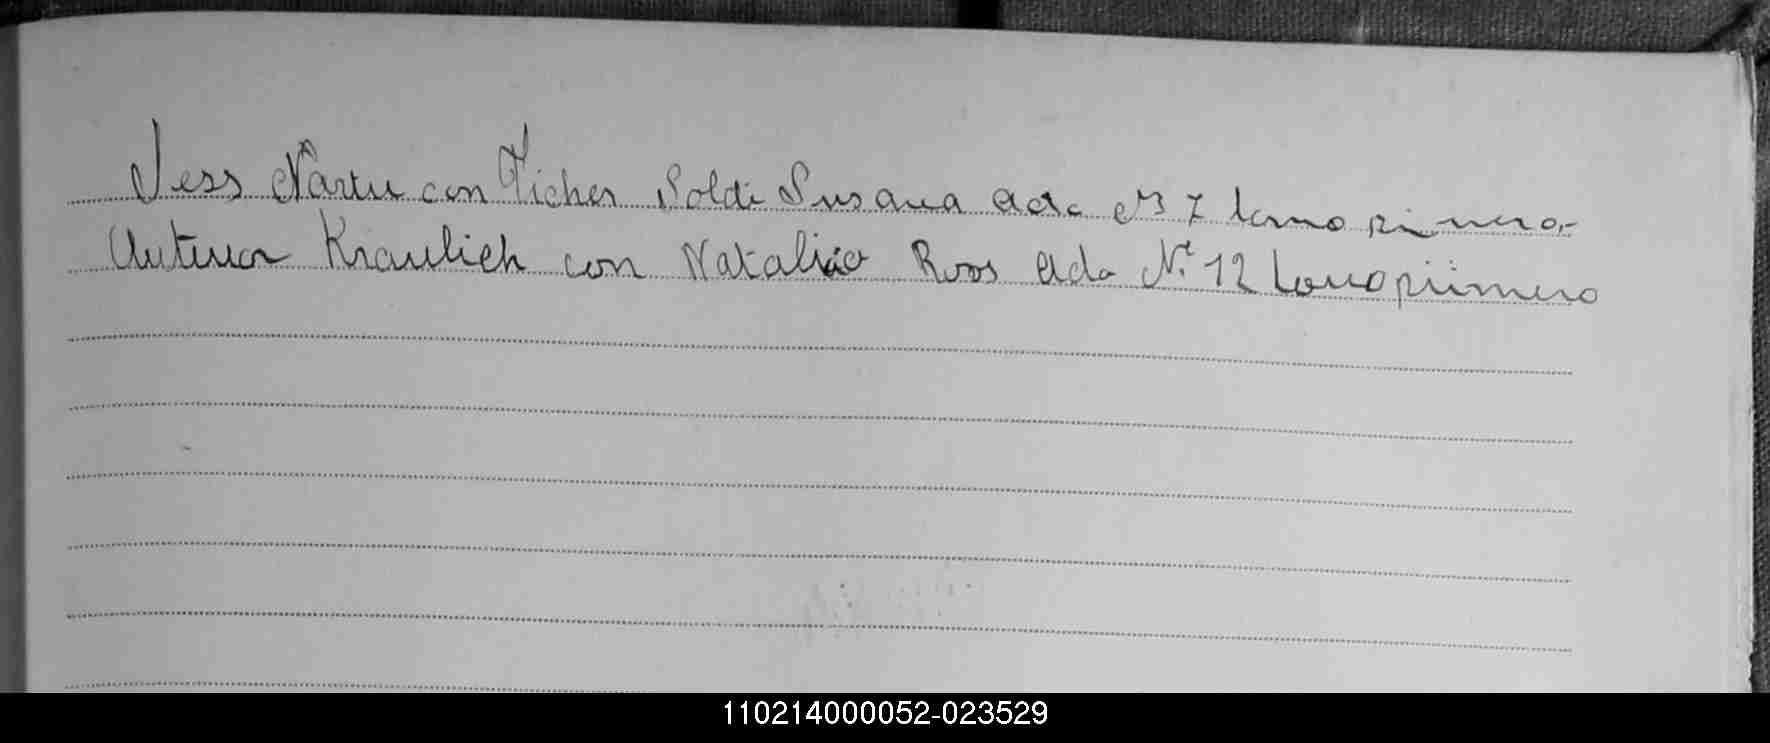 Jess Martin con Ficher Soldi Susana acta Nº 7 tomo primero.-
Kraulich con Natalia Roos acta Nº 12 tomo primero
110214000052-023529